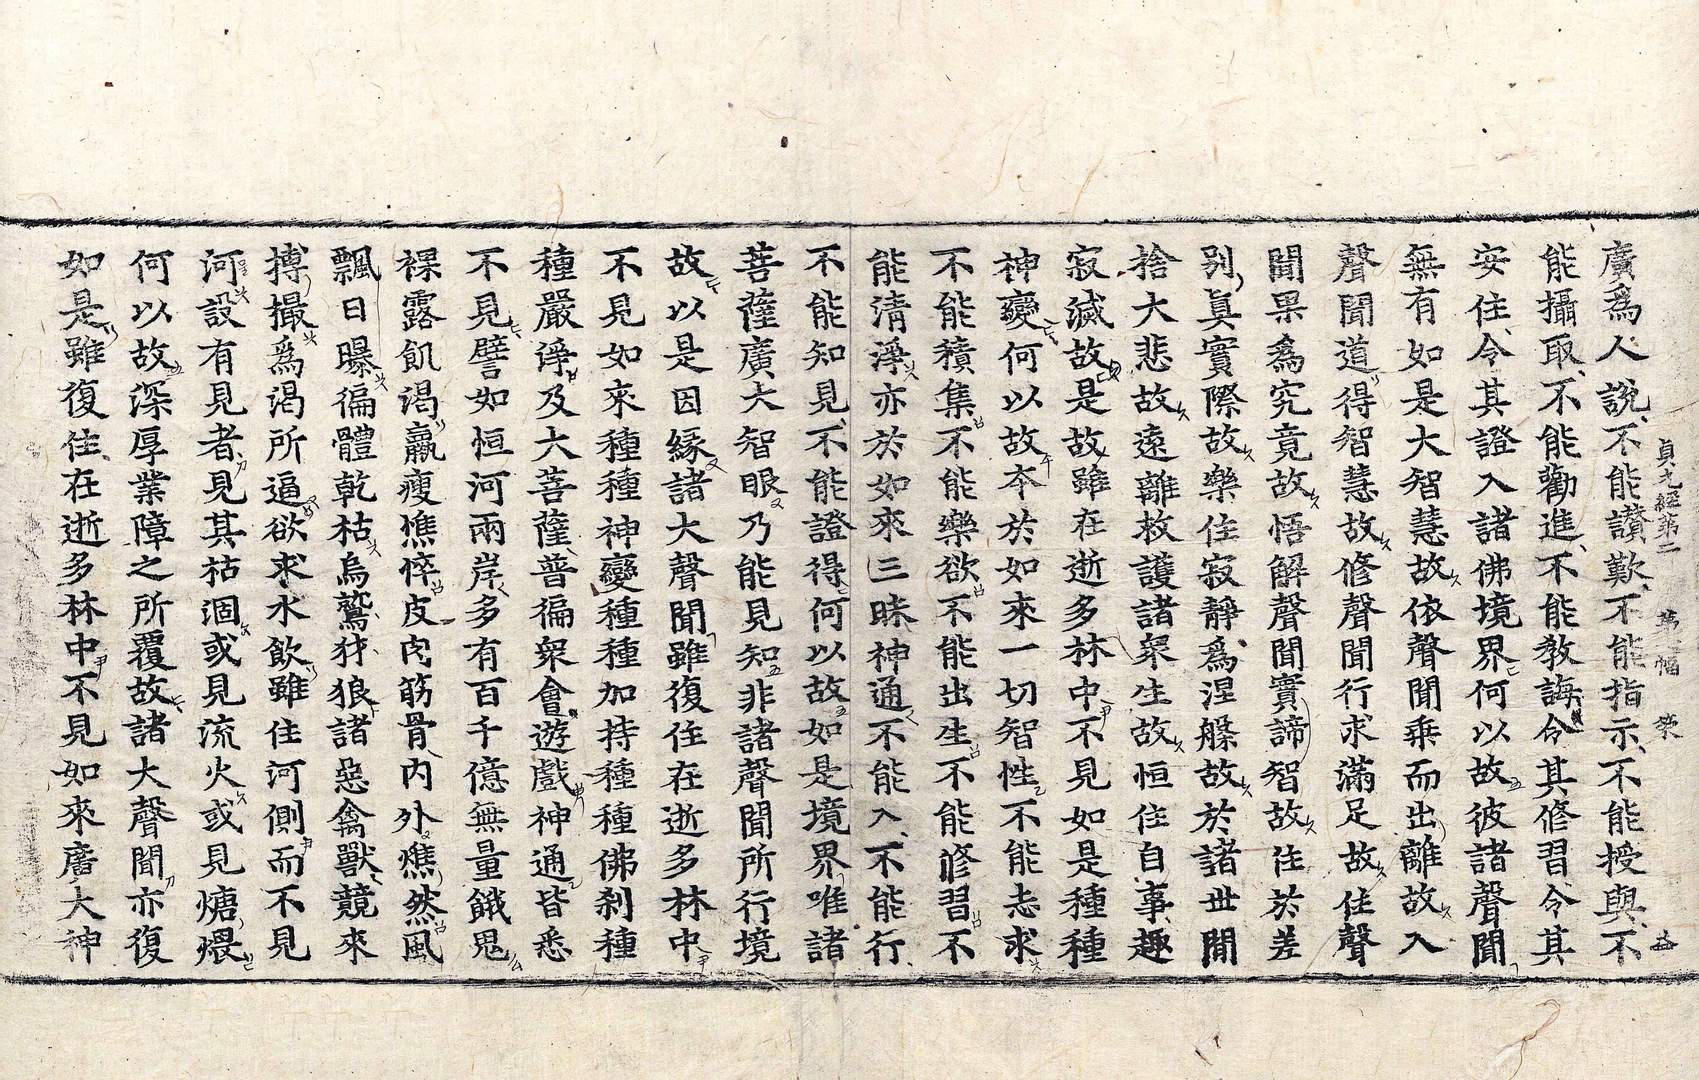 廣爲人說不能讃歎不能指示不能授與不
能攝取不能勸進不能教誨令其修習令其
安住令其證入諸佛境界何以故彼諸聲聞
無有如是大智慧故依聲聞乘而出離故入
聲聞道得智慧故修聲聞行求滿足故住聲
聞果爲究竟故悟解聲聞實諦智故住於差
別眞實際故樂住寂靜爲涅槃故於諸世間
捨大悲故遠離救護諸衆生故恒住自事趣
寂滅故是故雖在逝多林中不見如是種種
神變何以故夲於如來一切智性不能志求
不能積集不能樂欲不能出生不能修習不
能清淨亦於如來三昧神通不能入不能行
不能知見不能證得何以故如是境界唯諸
菩薩廣大智眼乃能見知非諸聲聞所行境
故以是因縁諸大聲聞雖復住在逝多林中
不見如來種種神變種種加持種種佛刹種
種嚴淨及大菩薩普徧衆會遊戲神通皆悉
不見譬如恒河兩岸多有百千億無量餓鬼
裸露飢渴羸瘦燋悴皮肉筋骨內外燋然風
飄日曝徧體乾枯烏鷲犲狼諸惡禽獸競來
搏撮爲渴所逼欲求水飲雖住河側而不見
河設有見者見其枯涸或見流火或見煻煨
何以故深厚業障之所覆故諸大聲聞亦復
如是雖復住在逝多林中不見如來廣大神